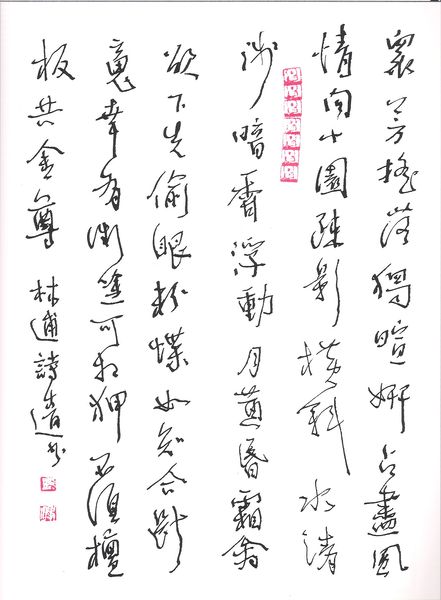 眾芳搖落獨暄妍占盡風
情向小園疎影橫斜水清
淺暗香浮動月黃昏霜禽
欲下先偷眼粉蝶如知合斷
魂幸有微吟可相狎不須檀
板共金尊 林逋詩